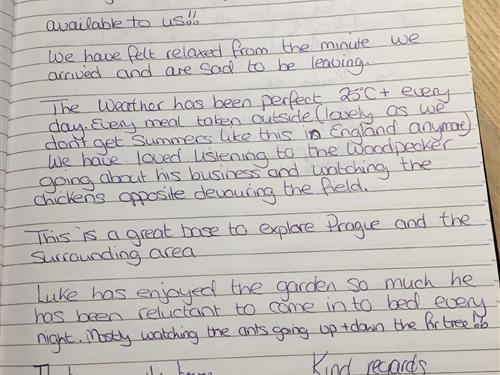 available to us!!
We have felt relaxed from the minute we
arrived and are sad to be leaving.
The weather has been perfect 25°C+ every
day. Every meal taken outside (lovely as we
don't get summers like this in England anymore)
We have loved listening to the Woodpecker
going about his business and watching the
chickens opposite devouring the field.
This is a great base to explore Prague and the
surrounding area
Luke has enjoyed the garden so much he
has been reluctant to come in to bed every
night. Mostly watching the ants going up + down the fir tree!!
Kind regards